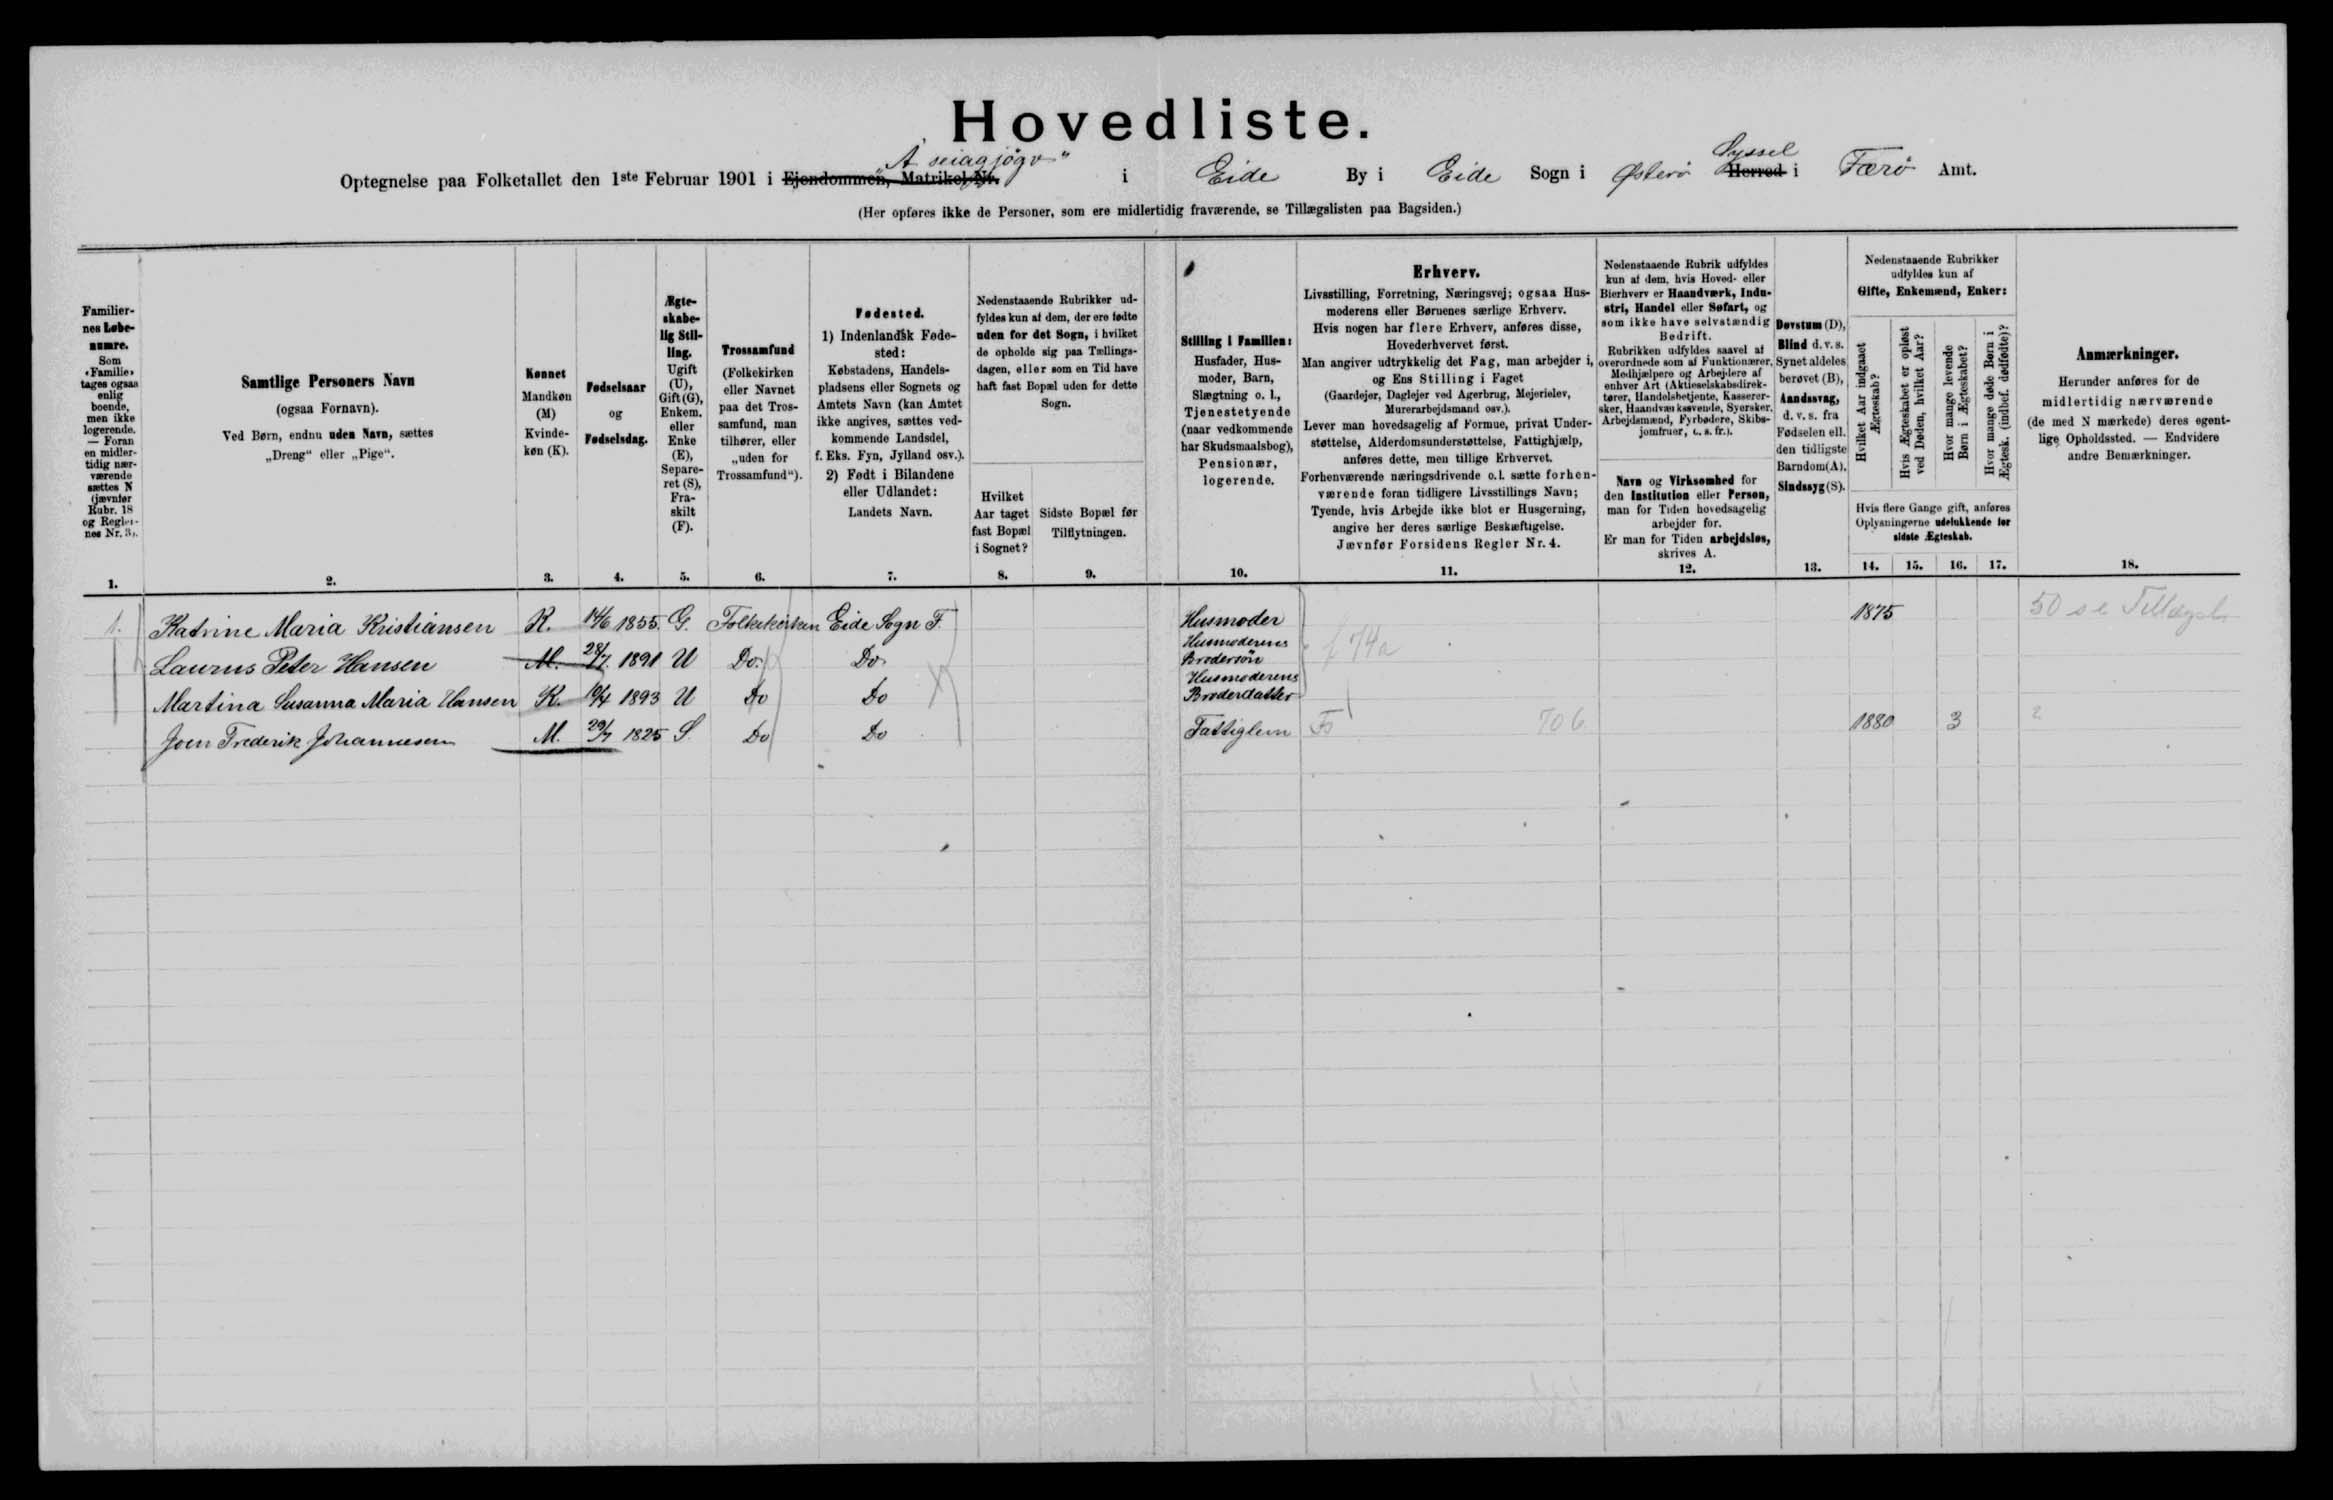 Hovedliste.
Optegnelse paa Folketallet den 1ste Februar 1901 i Ejendommen, Matrikel-Nr. "Á seiagjögv" i Eide By i Eide Sogn i Østerø Herred Syssel i Færø Amt.
(Her opføres ikke de Personer, som ere midlertidig fraværende, se Tillægslisten paa Bagsiden.)
Familier-
nes Løbe-
numre.
Som
«Familie»
tages ogsaa
enlig
boende,
men ikke
logerende.
— Foran
en midler-
tidig nær-
værende
sættes N
(jævnfør
Rubr. 18
og Regler-
nes Nr. 3).
1.
Samtlige Personers Navn
(ogsaa Fornavn).
Ved Børn, endnu uden Navn, sættes
„Dreng“ eller „Pige“.
2.
Kønnet
Mandkøn
(M)
Kvinde-
køn (K).
3.
Fødselsaar
og
Fødselsdag.
4.
Ægte-
skabe-
lig Stil-
ling.
Ugift
(U),
Gift (G),
Enkem.
eller
Enke
(E),
Separe-
ret (S),
Fra-
skilt
(F).
5.
Trossamfund
(Folkekirken
eller Navnet
paa det Tros-
samfund, man
tilhører, eller
„uden for
Trossamfund“).
6.
Fødested.
1) Indenlandsk Føde-
sted:
Købstadens, Handels-
pladsens eller Sognets og
Amtets Navn (kan Amtet
ikke angives, sættes ved-
kommende Landsdel,
f. Eks. Fyn, Jylland osv.).
2) Født i Bilandene
eller Udlandet:
Landets Navn.
7.
Nedenstaaende Rubrikker ud-
fyldes kun af dem, der ere fødte
uden for det Sogn, i hvilket
de opholde sig paa Tællings-
dagen, eller som en Tid have
haft fast Bopæl uden for dette
Sogn.
Hvilket
Aar taget
fast Bopæl
i Sognet?
8.
Sidste Bopæl før
Tilflytningen.
9.
Stilling i Familien:
Husfader, Hus-
moder, Barn,
Slægtning o. l.,
Tjenestetyende
(naar vedkommende
har Skudsmaalsbog),
Pensionær,
logerende.
10.
Erhverv.
Livsstilling, Forretning, Næringsvej; ogsaa Hus-
moderens eller Børnenes særlige Erhverv.
Hvis nogen har flere Erhverv, anføres disse,
Hovederhvervet først.
Man angiver udtrykkelig det Fag, man arbejder i,
og Ens Stilling i Faget
(Gaardejer, Daglejer ved Agerbrug, Mejerielev,
Murerarbejdsmand osv.).
Lever man hovedsagelig af Formue, privat Under-
støttelse, Alderdomsunderstøttelse, Fattighjælp,
anføres dette, men tillige Erhvervet.
Forhenværende næringsdrivende o.l. sætte forhen-
værende foran tidligere Livsstillings Navn;
Tyende, hvis Arbejde ikke blot er Husgerning,
angive her deres særlige Beskæftigelse.
Jævnfør Forsidens Regler Nr. 4.
11.
Nedenstaaende Rubrik udfyldes
kun af dem, hvis Hoved- eller
Bierhverv er Haandværk, Indu-
stri, Handel eller Søfart, og
som ikke have selvstændig
Bedrift.
Rubrikken udfyldes saavel af
overordnede som af Funktionærer,
Medhjælpere og Arbejdere af
enhver Art (Aktieselskabsdirek-
tører, Handelsbetjente, Kasserer-
sker, Haandværkssvende, Syersker,
Arbejdsmænd, Fyrbødere, Skibs-
jomfruer, o. s. fr.).
Navn og Virksomhed for
den Institution eller Person,
man for Tiden hovedsagelig
arbejder for.
Er man for Tiden arbejdsløs,
skrives A.
12.
Døvstum (D),
Blind d. v. s.
Synet aldeles
berøvet (B),
Aandssvag,
d. v. s. fra
Fødselen ell.
den tidligste
Barndom (A),
Sindssyg (S).
13.
Nedenstaaende Rubrikker
udfyldes kun af
Gifte, Enkemænd, Enker:
Hvilket Aar indgaaet
Ægteskab?
Hvis Ægteskabet er opløst
ved Døden, hvilket Aar?
Hvor mange levende
Børn i Ægteskabet?
Hvor mange døde Børn i
Ægtesk. (indbef. dødfødte)?
Hvis flere Gange gift, anføres
Oplysningerne udelukkende for
sidste Ægteskab.
14. 15. 16. 17.
Anmærkninger.
Herunder anføres for de
midlertidig nærværende
(de med N mærkede) deres egent-
lige Opholdssted. — Endvidere
andre Bemærkninger.
18.
1. Katrine Maria Kristiansen K. 14/6 1855. G. Folkekirken Eide Sogn F. Husmoder 1875 50 se Tillægsl.
Laurus Peter Hansen M. 28/7 1891 U Do. Do. Husmoderens Brodersön f 74a
Martina Susanna Maria Hansen K. 10/4 1893 U Do Do Husmoderens Broderdatter
Joen Frederik Johannesen M. 29/7 1825 S. Do Do Fattiglem Fs 706 1880 3 2